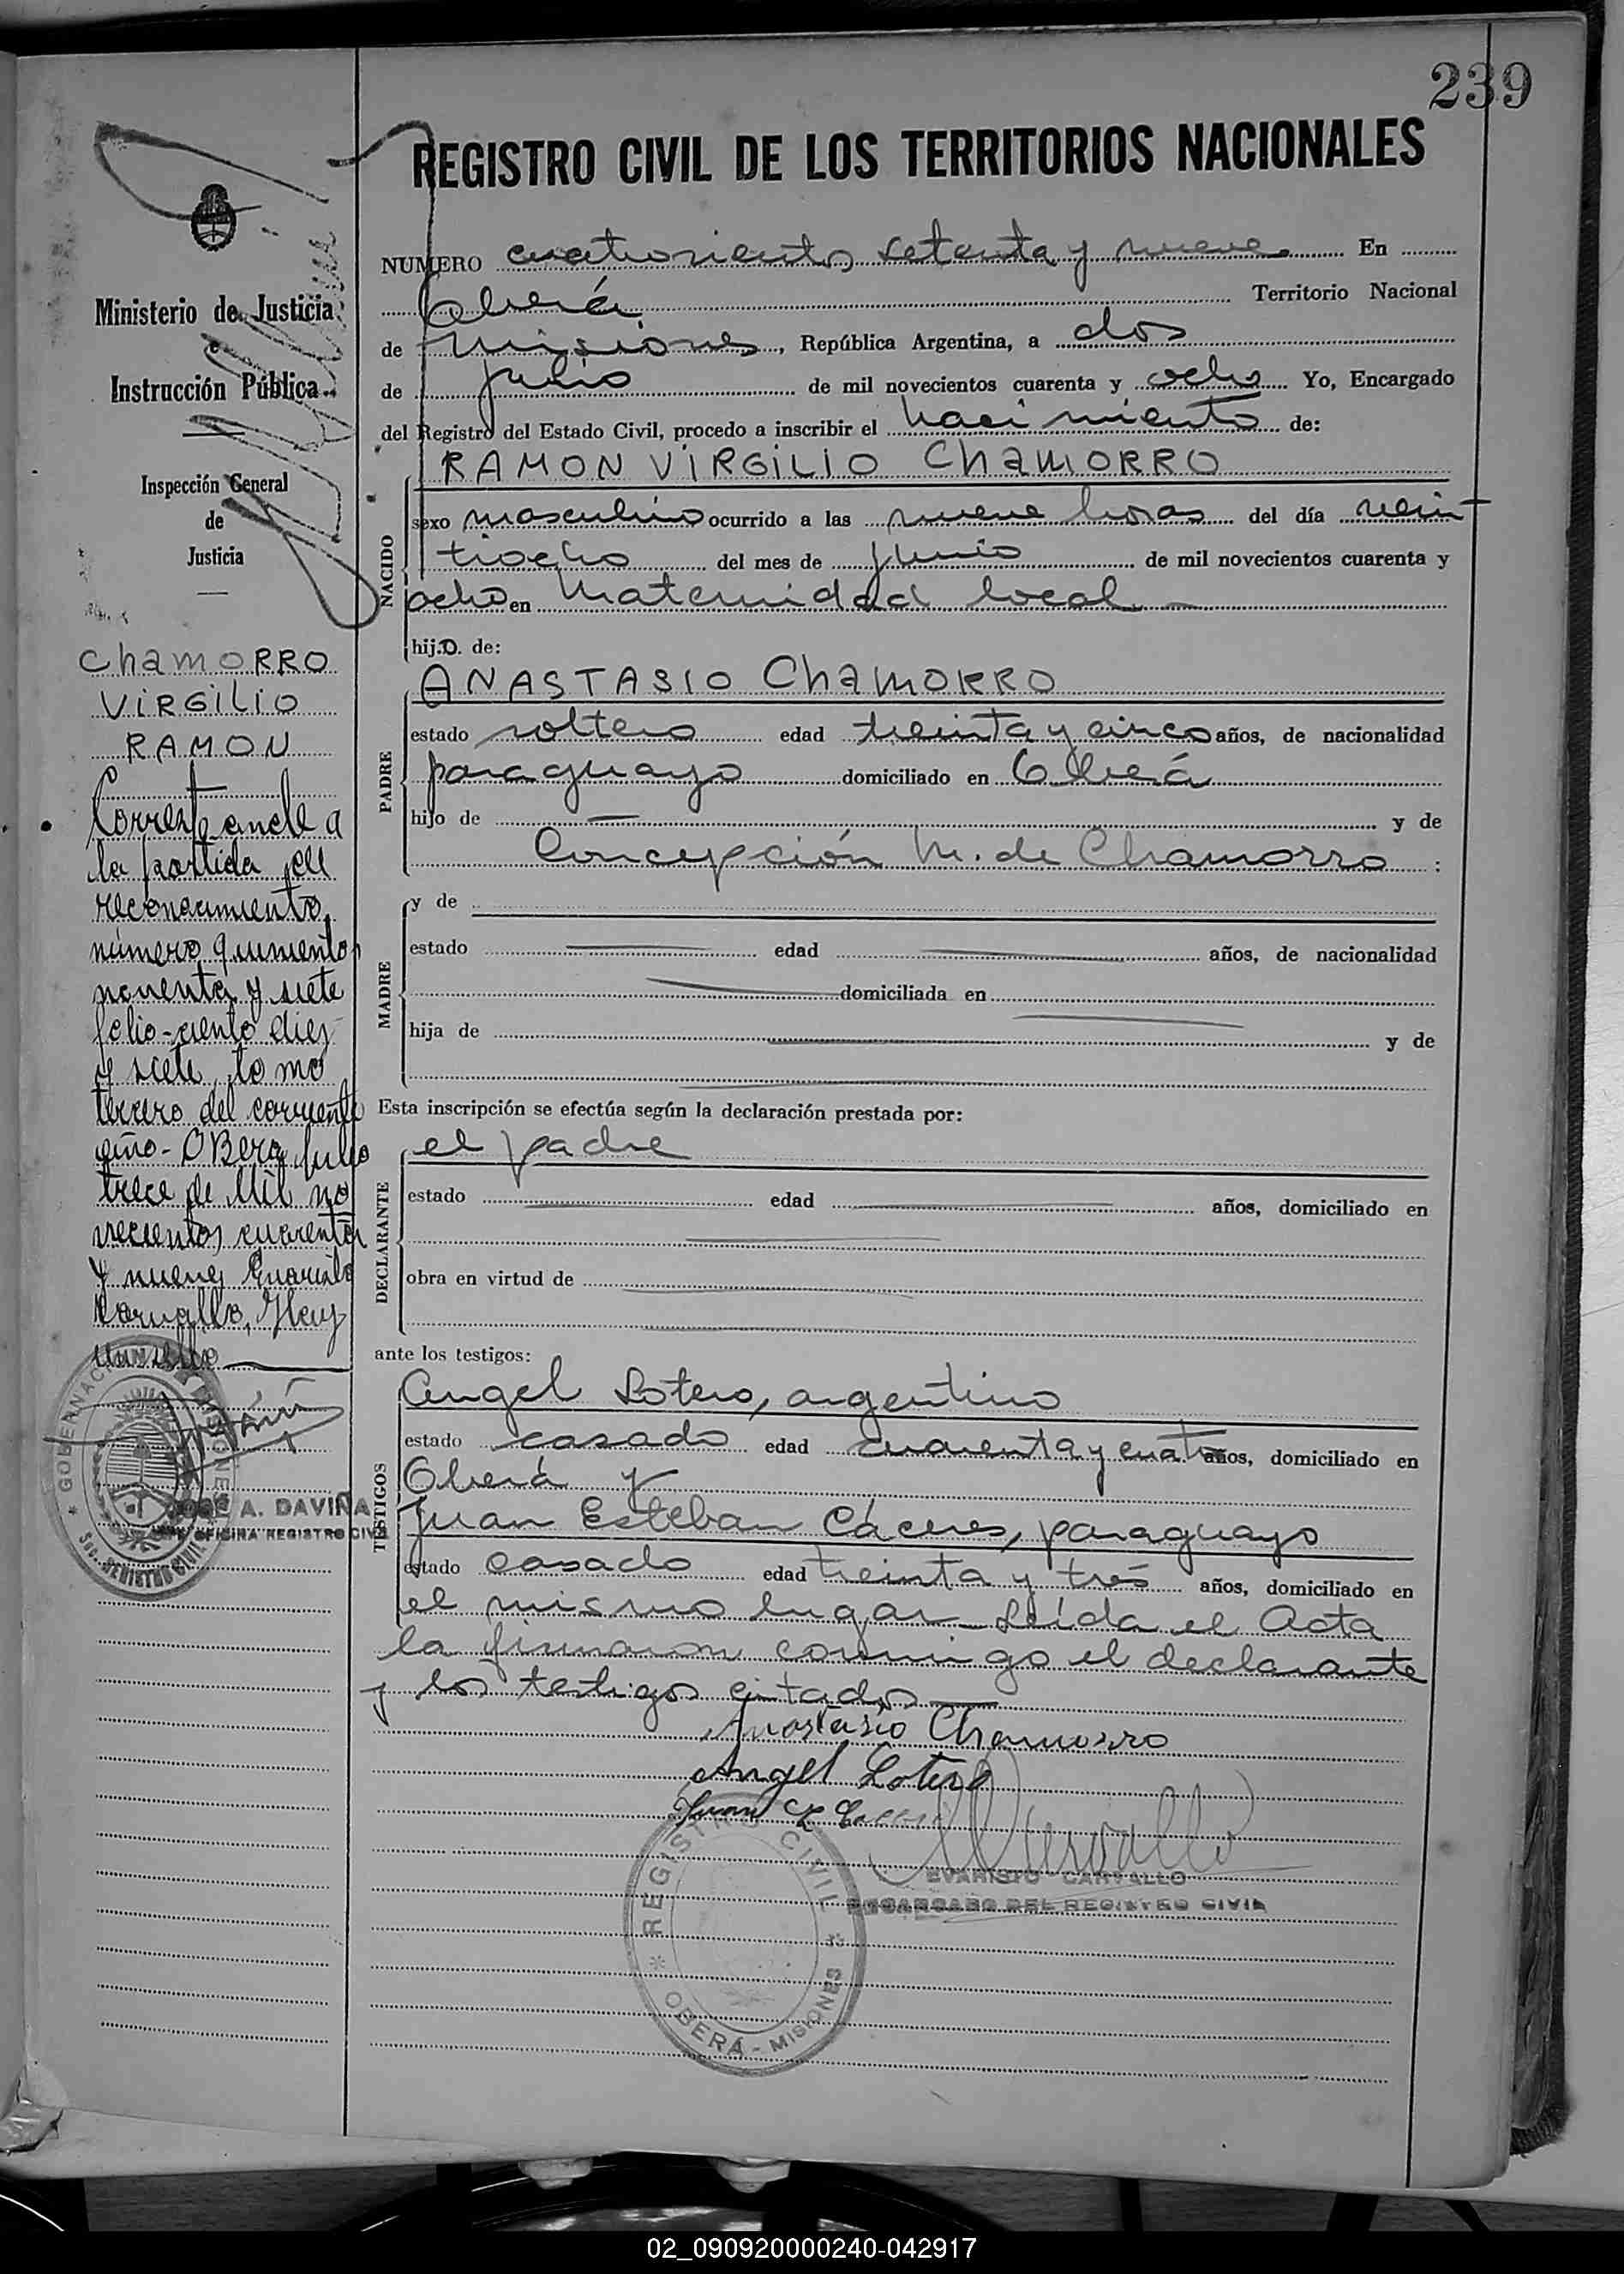 239
REGISTRO CIVIL DE LOS TERRITORIOS NACIONALES
Ministerio de Justicia
e
Instrucción Pública
Inspección General
de
Justicia
CHAMORRO
VIRGILIO
RAMON
Corresponde a
la partida de
reconocimiento
número quinientos
noventa y siete
folio ciento diez
y siete, tomo
tercero del corriente
año - Oberá Julio
trece de Mil no
vecientos cuarenta
y nueve, Evaristo
Carvallo,
JOSE A. DAVIÑA
OFICINA REGISTRO CIVIL
NUMERO cuatrocientos setenta y nueve En
Oberá Territorio Nacional
de Misiones, República Argentina, a dos
de julio de mil novecientos cuarenta y ocho Yo, Encargado
del Registro del Estado Civil, procedo a inscribir el nacimiento de:
RAMON VIRGILIO CHAMORRO
NACIDO
sexo masculino ocurrido a las nueve horas del día vein
tiocho del mes de junio de mil novecientos cuarenta y
ocho en Maternidad local
hijo de:
ANASTASIO CHAMORRO
PADRE
estado soltero edad treinta y cinco años, de nacionalidad
paraguayo domiciliado en Oberá
hijo de y de
Concepción M. de Chamorro :
y de
MADRE
estado edad años, de nacionalidad
domiciliada en
hija de y de
Esta inscripción se efectúa según la declaración prestada por:
el padre
DECLARANTE
estado edad años, domiciliado en
obra en virtud de
ante los testigos:
Angel Sotero, argentino
TESTIGOS
estado casado edad cuarenta y cuatro años, domiciliado en
Oberá y
Juan Esteban Cáceres, paraguayo
estado casado edad treinta y tres años, domiciliado en
el mismo lugar Leída el Acta
la firmaron conmigo el declarante
y los testigos citados
Anastasio Chamorro
Angel Sotero
Juan E
EVARISTO CARVALLO
ENCARGADO DEL REGISTRO CIVIL
REGISTRO CIVIL
OBERÁ - MISIONES
02_090920000240-042917